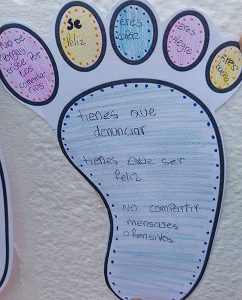 NO te
pongas
triste por
Los
comentarios
se
feliz
eres
capaz
eres
alegre
eres
feliz
tienes que
denunciar
tienes que ser
feliz
NO compartir
mensajes
ofensivos